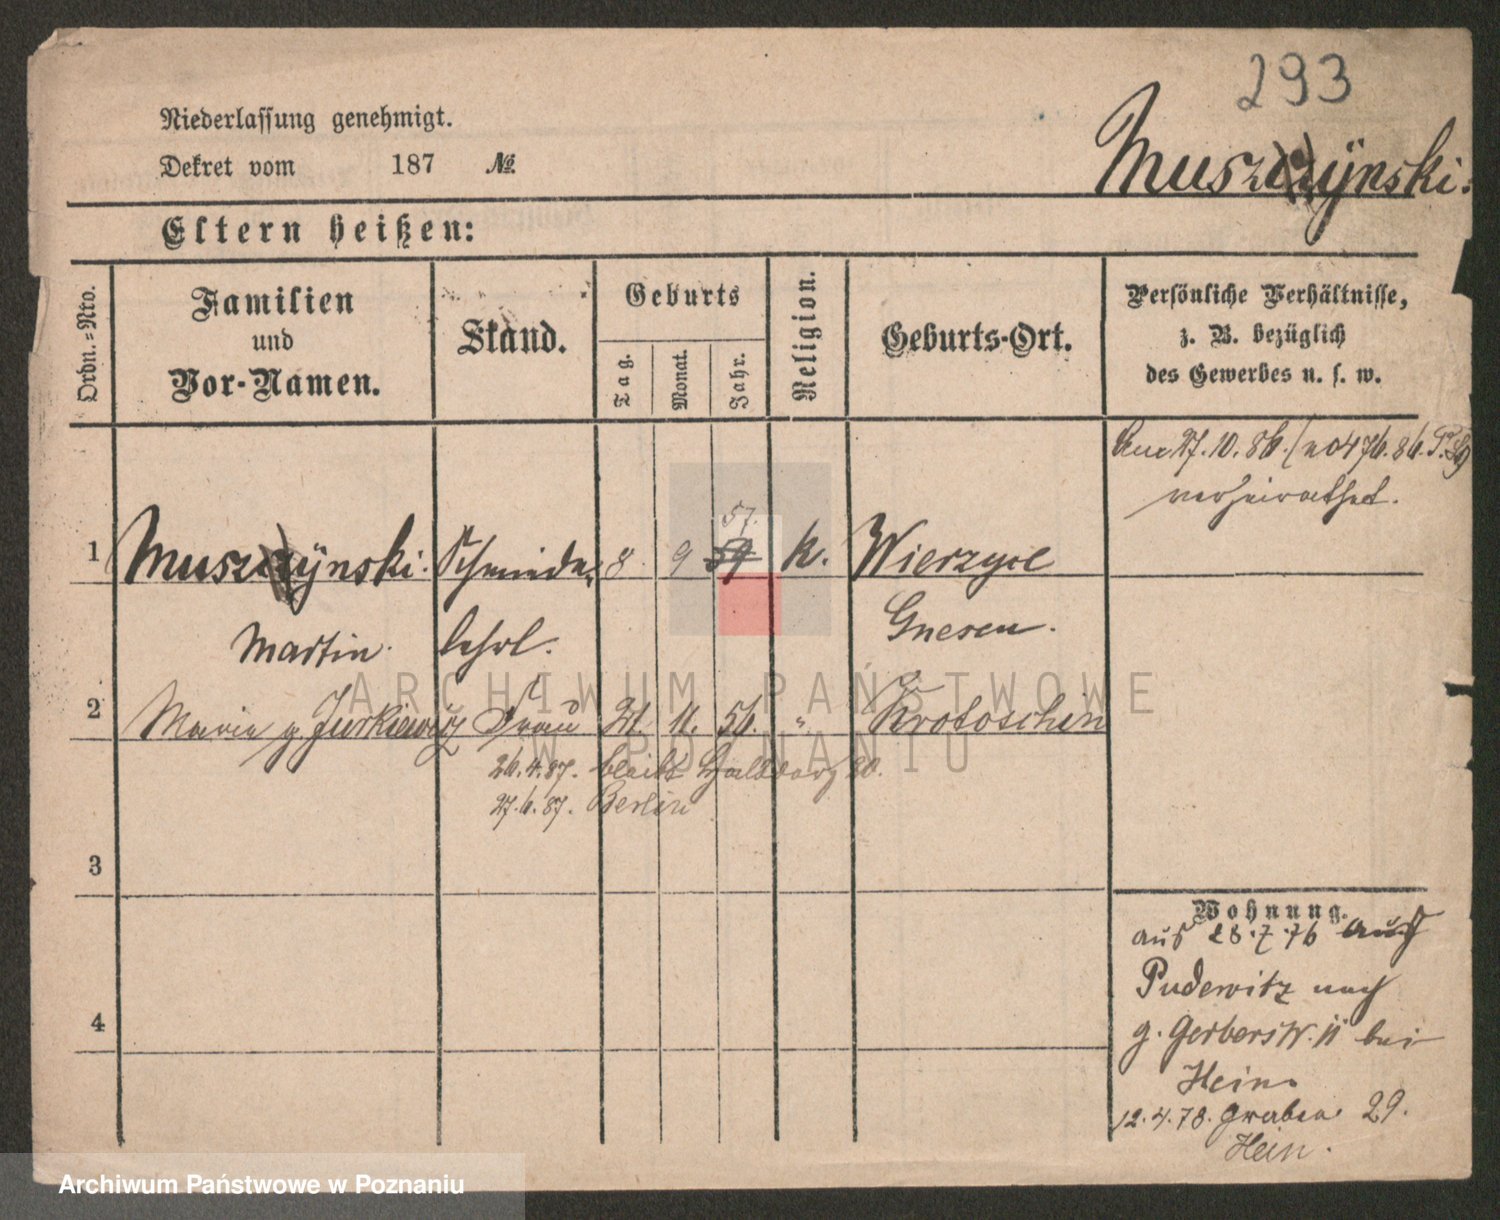 293
Niederlassung genehmigt.
Dekret vom 187 №
Muszczÿnski.
Eltern heißen:
Ordn.-Nro.
Familien
und
Vor-Namen.
Stand.
Geburts
Tag.
Monat.
Jahr.
Religion.
Geburts-Ort.
Persönliche Verhältnisse,
z. B. bezüglich
des Gewerbes u. s. w.
27.10.86.
verheirathet.
57.
1 Muszczÿnski. Schmiede 8 9 59 k. Wierzyce
Martin. lehrl. Gnesen.
2 Maria g. Jurkiewicz Frau 21. 11. 56. " Krotoschin
26.4.87. bleibt 20.
27.6.87. Berlin
3
4
Wohnung.
aus 28.7.76 aus
Pudewitz nach
g. Gerberstr. 11 bei
Hein.
12.4.78. Graben 29.
Hein.
ARCHIWUM PAŃSTWOWE
W POZNANIU
Archiwum Państwowe w Poznaniu